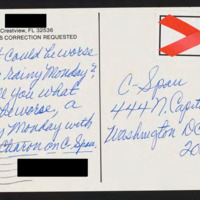 Crestview, FL 32536
S CORRECTION REQUESTED
t could be worse
rainy Monday?
ll you what
be worse, a
y Monday with
Charon on C Span.
C-Span
444 N. Capit
Washington DC
20